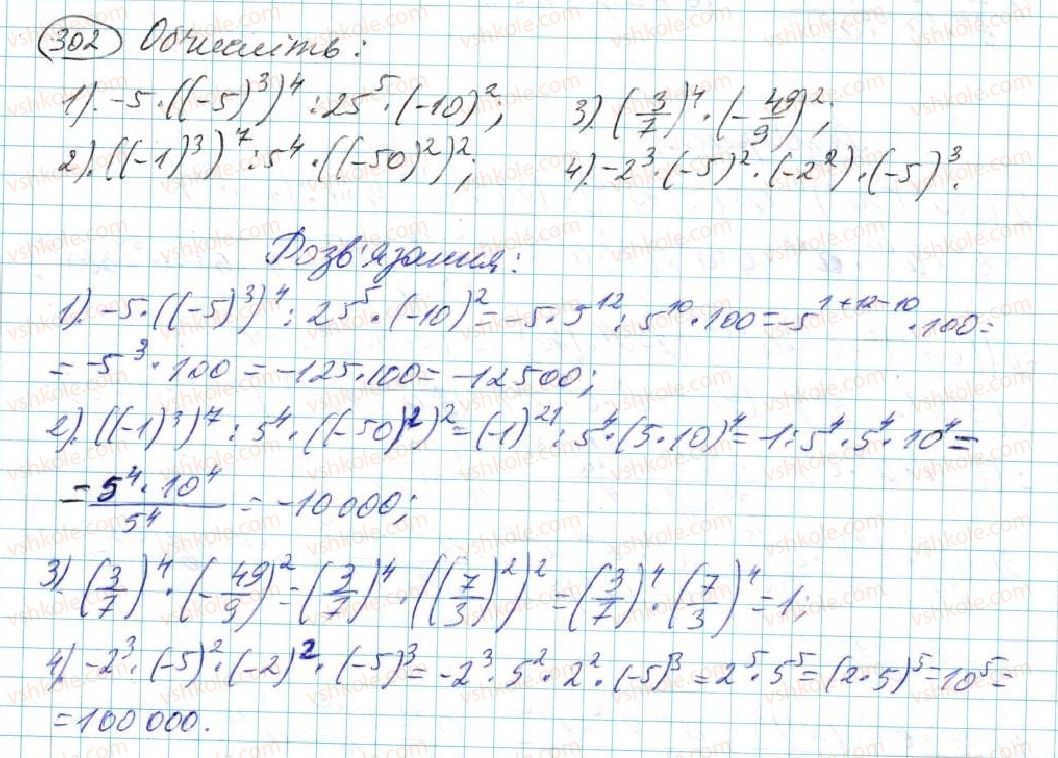 302 Обчисліть:
1). -5·((-5)³)⁴:25⁵·(-10)²; 3). (3/7)⁴·(-49/9)²;
2). ((-1)³)⁷:5⁴·((-50)²)²; 4). -2³·(-5)²·(-2²)·(-5)³.
Розв'язання:
1). -5·((-5)³)⁴:25⁵·(-10)²=-5·5¹²:5¹⁰·100=-5¹⁺¹²⁻¹⁰·100=
=-5³·100=-125·100=-12500;
2). ((-1)³)⁷:5⁴·((-50)²)²=(-1)²¹:5⁴·(5·10)⁴=-1:5⁴·5⁴·10⁴=
=-5⁴·10⁴/5⁴=-10000;
3) (3/7)⁴·(-49/9)²=(3/7)⁴·((7/3)²)²=(3/7)⁴·(7/3)⁴=1;
4) -2³·(-5)²·(-2)²·(-5)³=-2³·5²·2²·(-5)³=2⁵·5⁵=(2·5)⁵=10⁵=
=100000.
vshkole.com